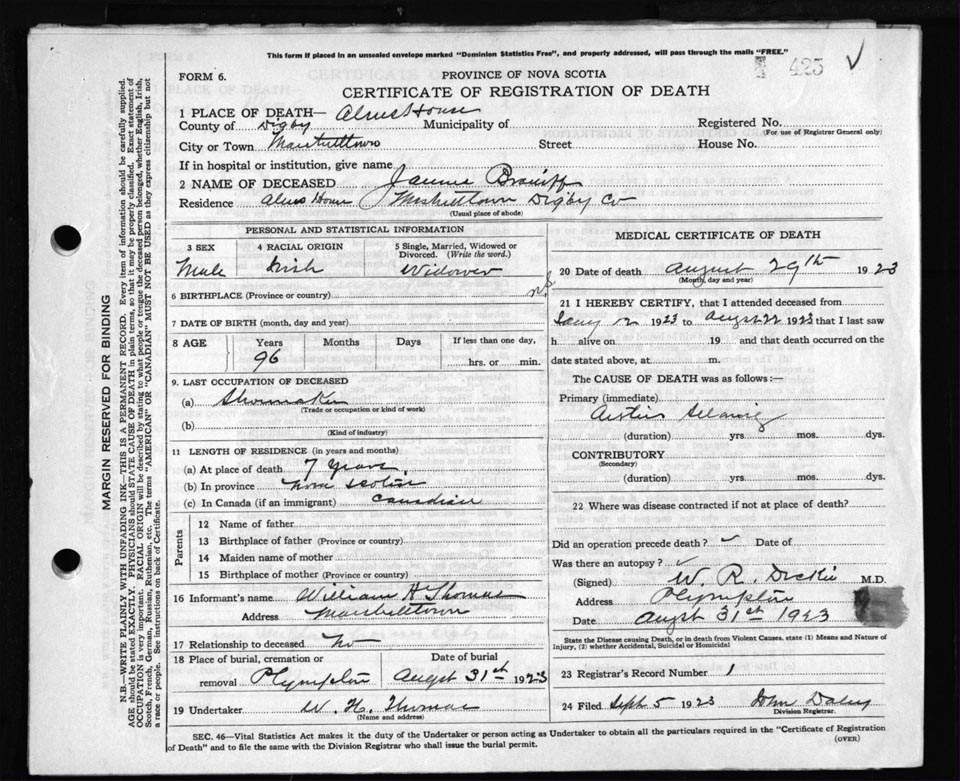 This form if placed in an unsealed envelope marked "Dominion Statistics Free", and properly addressed, will pass through the mails "FREE."
425
FORM 6.
PROVINCE OF NOVA SCOTIA
CERTIFICATE OF REGISTRATION OF DEATH
1 PLACE OF DEATH— Alms House
County of Digby Municipality of
Registered No.
(For use of Registrar General only)
City or Town Street House No.
If in hospital or institution, give name
2 NAME OF DECEASED
Residence Alms House Digby Co
(Usual place of abode)
PERSONAL AND STATISTICAL INFORMATION
3 SEX 4 RACIAL ORIGIN 5 Single, Married, Widowed or Divorced. (Write the word.)
Male Irish Widower
6 BIRTHPLACE (Province or country)
7 DATE OF BIRTH (month, day and year)
8 AGE Years Months Days If less than one day,
96 hrs. or min.
9. LAST OCCUPATION OF DECEASED
(a) Shoemaker
(Trade or occupation or kind of work)
(b)
(Kind of industry)
11 LENGTH OF RESIDENCE (in years and months)
(a) At place of death 7 years
(b) In province Nova Scotia
(c) In Canada (if an immigrant) Canadian
Parents
12 Name of father
13 Birthplace of father (Province or country)
14 Maiden name of mother
15 Birthplace of mother (Province or country)
16 Informant's name William H Thomas
Address Marshalltown
17 Relationship to deceased No
18 Place of burial, cremation or removal Plympton
Date of burial
Augst 31st 1923
19 Undertaker W. H. Thomas
(Name and address)
MEDICAL CERTIFICATE OF DEATH
20 Date of death August 29th 1923
(Month, day and year)
21 I HEREBY CERTIFY, that I attended deceased from
1923 to Augst 22 1923 that I last saw
h alive on 19 and that death occurred on the
date stated above, at m.
The CAUSE OF DEATH was as follows :—
Primary (immediate)
(duration) yrs. mos. dys.
CONTRIBUTORY
(Secondary)
(duration) yrs. mos. dys.
22 Where was disease contracted if not at place of death?
Did an operation precede death? ✓ Date of
Was there an autopsy? ✓
(Signed) W. R. Dickie M.D.
Address Plympton
Date Augst 31st 1923
State the Disease causing Death, or in death from Violent Causes, state (1) Means and Nature of
Injury, (2) whether Accidental, Suicidal or Homicidal
23 Registrar's Record Number 1
24 Filed Sept 5 1923 John Daley
Division Registrar.
SEC. 46—Vital Statistics Act makes it the duty of the Undertaker or person acting as Undertaker to obtain all the particulars required in the "Certificate of Registration
of Death" and to file the same with the Division Registrar who shall issue the burial permit.
(OVER)
MARGIN RESERVED FOR BINDING
N.B.—WRITE PLAINLY WITH UNFADING INK—THIS IS A PERMANENT RECORD. Every item of information should be carefully supplied.
AGE should be stated EXACTLY. PHYSICIANS should STATE CAUSE OF DEATH in plain terms, so that it may be properly classified. Exact statement of
OCCUPATION is very important. RACIAL ORIGIN will be described by stating to what people or tongue the deceased person belonged, whether English, Irish,
Scotch, French, German, Russian, Ruthenian, etc. The terms "AMERICAN" OR "CANADIAN" MUST NOT BE USED as they express citizenship but not
a race or people. See instructions on back of Certificate.